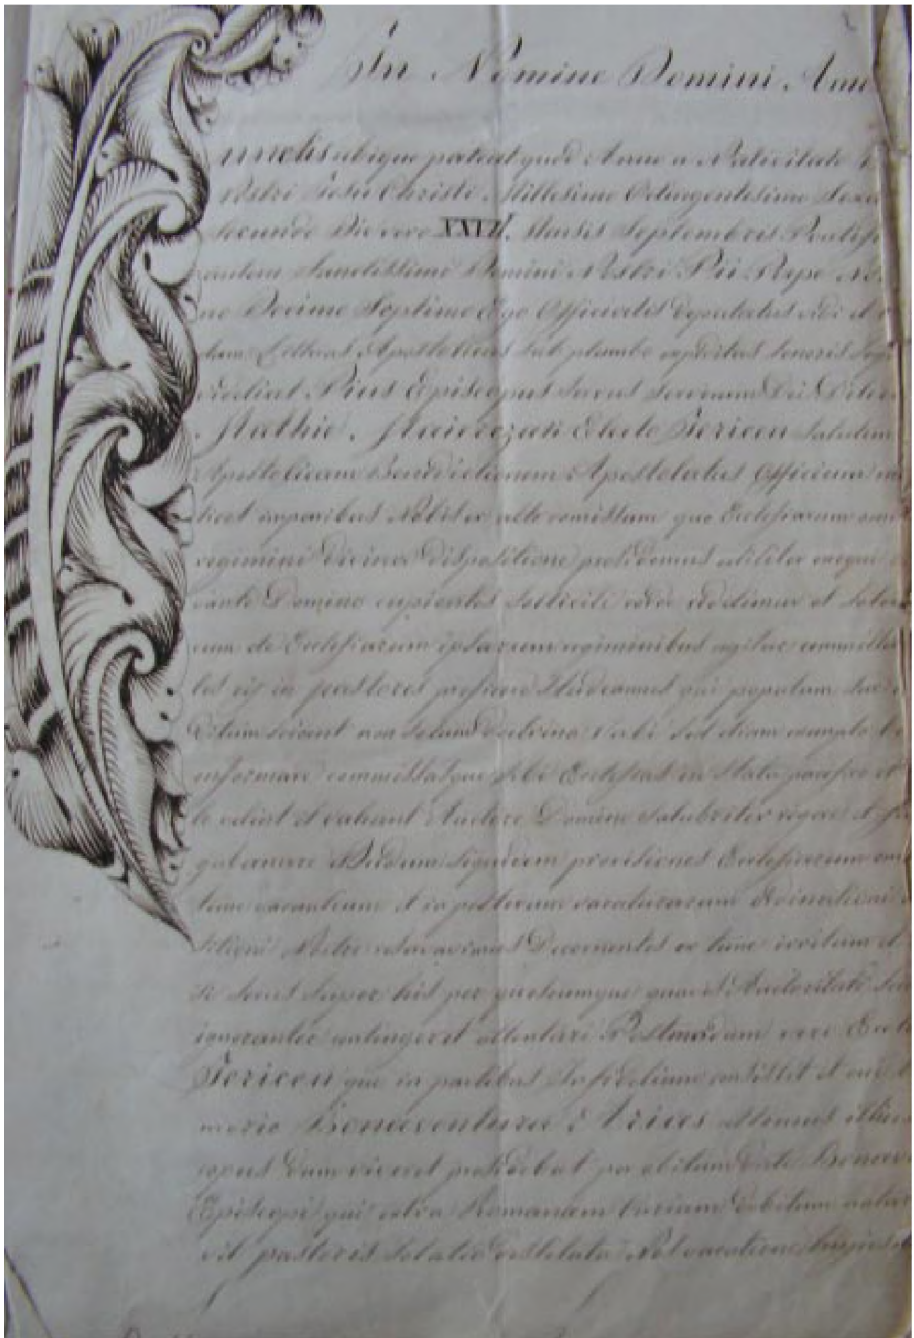 In Nomine Domini. Am
Cunctis ubique pateat quod Anno a Nativitate
Nostri Jesu Christi. Millesimo Octingentesimo Sexa
secundo Die vero XXVII. Mensis Septembris Pontifi
autem Sanctissimi Domini Nostri Pii Pape No
no Decimo Septimo Ego Officialis deputatus vidi et
dam Litteras Apostolicas sub plumbo expeditas tenoris
videlicet Pius Episcopus Servus Servorum Dei Dilecto
Mathie Electo Jericen Salutem
Apostolicam Benedictionem Apostolatus Officium
licet imparibus Nobis ex alto comissum quo Ecclesiarum om
regimini divina dispositione presidemus utiliter exequi
vante Domino cupientes solliciti corde reddimur et soler
cum de Ecclesiarum ipsarum regiminibus agitur committen
les eis in pastores preficere studeamus qui populum sue
ditum sciant non solum doctrina Verbi sed etiam exemplo
informare commissasque sibi Ecclesias in statu pacifico et
lo velint et valeant Auctore Domino salubriter regere et
gubernare Dudum siquidem provisiones Ecclesiarum om
tunc vacantium et in posterum vacaturarum Ordinationi
sitioni Nostre reservavimus Decernentes ex tunc irritum et
si secus super his per quoscumque quavis Auctoritate sci
ignoranter contingeret attentari Postmodum vero Eccle
Jericen que in partibus Infidelium consistit et cui
morie Bonaventura Atrices
copus dum viveret presidebat per obitum dicti Bonave
Episcopi qui extra Romanam Curiam debitum natur
vit pastoris solatio destituta Nos vacatione hujusm